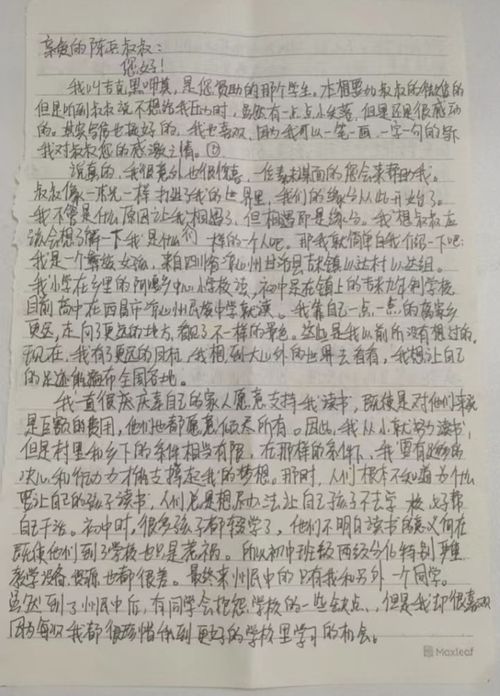 亲爱的陈兵叔叔：
您好！
我叫吉克黑 ，是您资助的那个学生。本想要加叔叔的微信的
但是听到叔叔说不想给我压力时，虽然有一点点小失落，但是还是很感动
的。其实写信也挺好的，我也喜欢，因为我可以一笔一画，一字一句的写下
我对叔叔您的感激之情。
说真的，我很意外也很惊喜，一位素未谋面的您会来帮助我。
叔叔像一束光一样 我的世界里，我们的缘分从此开始了。
我不管是什么原因让我相遇了，但相遇即是缘分。我想叔叔应
该会想了解一下我是什么样的一个人吧。那我就简单自我介绍一下吧：
我是一个彝族女孩，来自四川省凉山州 县 镇 达村 达组。
我小学在乡里的阿 乡中心小学校读，初中是在镇上的吉木 学校
目前高中在西昌市凉山州民族中学就读。我靠自己一点一点的离家乡
更远，走向了更远的地方，看见了不一样的景色。这些是我以前所没有想过的。
现在，我有了更远的目标，我想到大山外的世界去看看，我想让自己
的足迹能遍布全国各地。
我一直很庆幸自己的家人愿意支持我读书，既使是对他们来说
是巨额的费用，他们也都愿意倾尽所有。因此，我从小就努力读书，
但是村里和乡下的条件相当有限，在那样的条件下，我要有 的
决心和行动力才能支撑起我的梦想。那时，人们根本不知道为什么
要让自己的孩子读书，人们总是想尽办法让自己孩子不去学校，好帮
自己干活。初中时，很多孩子都辍学了，他们不明白读书的意义何在
既使他们到了学校也只是惹祸。所以初中班级两级分化特别严重
教学设备、资源也都很差。最终来州民中的只有我和另外一个同学。
虽然到了州民中后，有同学会抱怨学校的一些缺点，但是我却很喜欢
因为每次我都很珍惜来到更好的学校里学习的机会。
Maxleaf